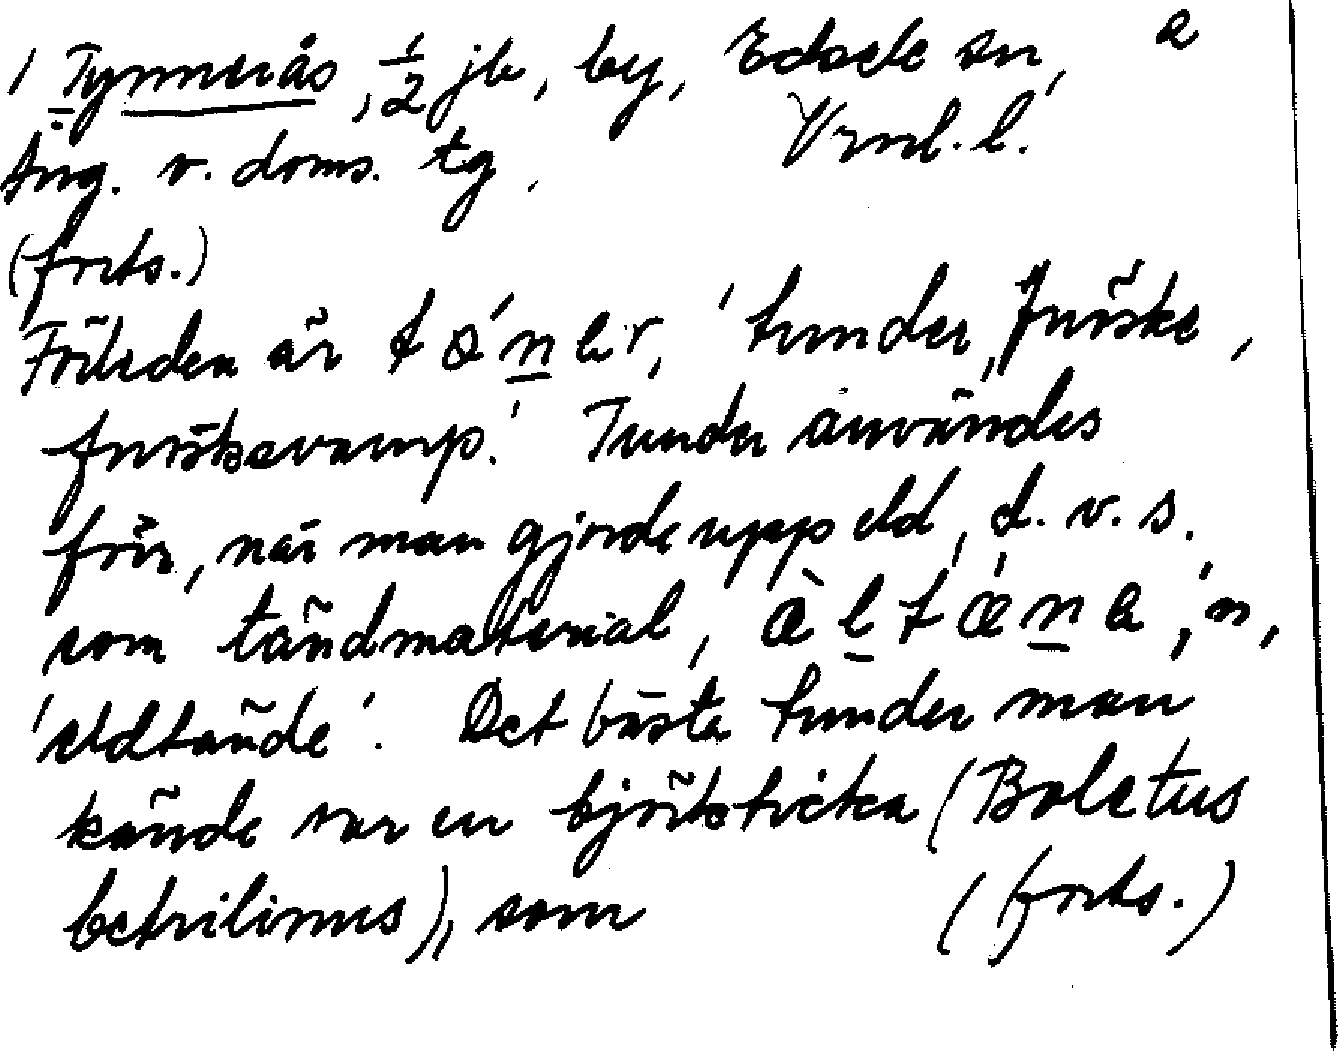 1 Tynnerås, ½ jb, by, Edsele sn, a
Ång. v. doms. tg, Vrnl. l.
(forts.)
Förleden är t ǿ n e r, 'tunder, fnöske,
fnösksvamp.' Tunder användes
förr, när man gjorde upp eld, d. v. s.
som tändmaterial, æ̀ l t ǽ n e, n,
'eldtände'. Det bästa tunder man
kände var en björkticka (Boletus
betulinus), som (forts.)